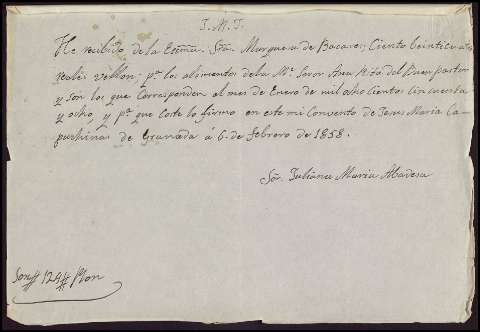 J. M. J.
He recibido de la Exma. Sra. Marquesa de Bacares; Ciento veinticuatro
reales vellon; pa. los alimentos de la Me. Soror Ana Rda. del Buen pastor
y son los que corresponden al mes de Enero de mil ocho cientos cincuenta
y ocho, y pa. que coste lo firmo en este mi Convento de Jesus Maria Ca-
puchinas de Granada á 6. de Febrero de 1858.
Sor. Juliana Maria Abadesa
Son 124